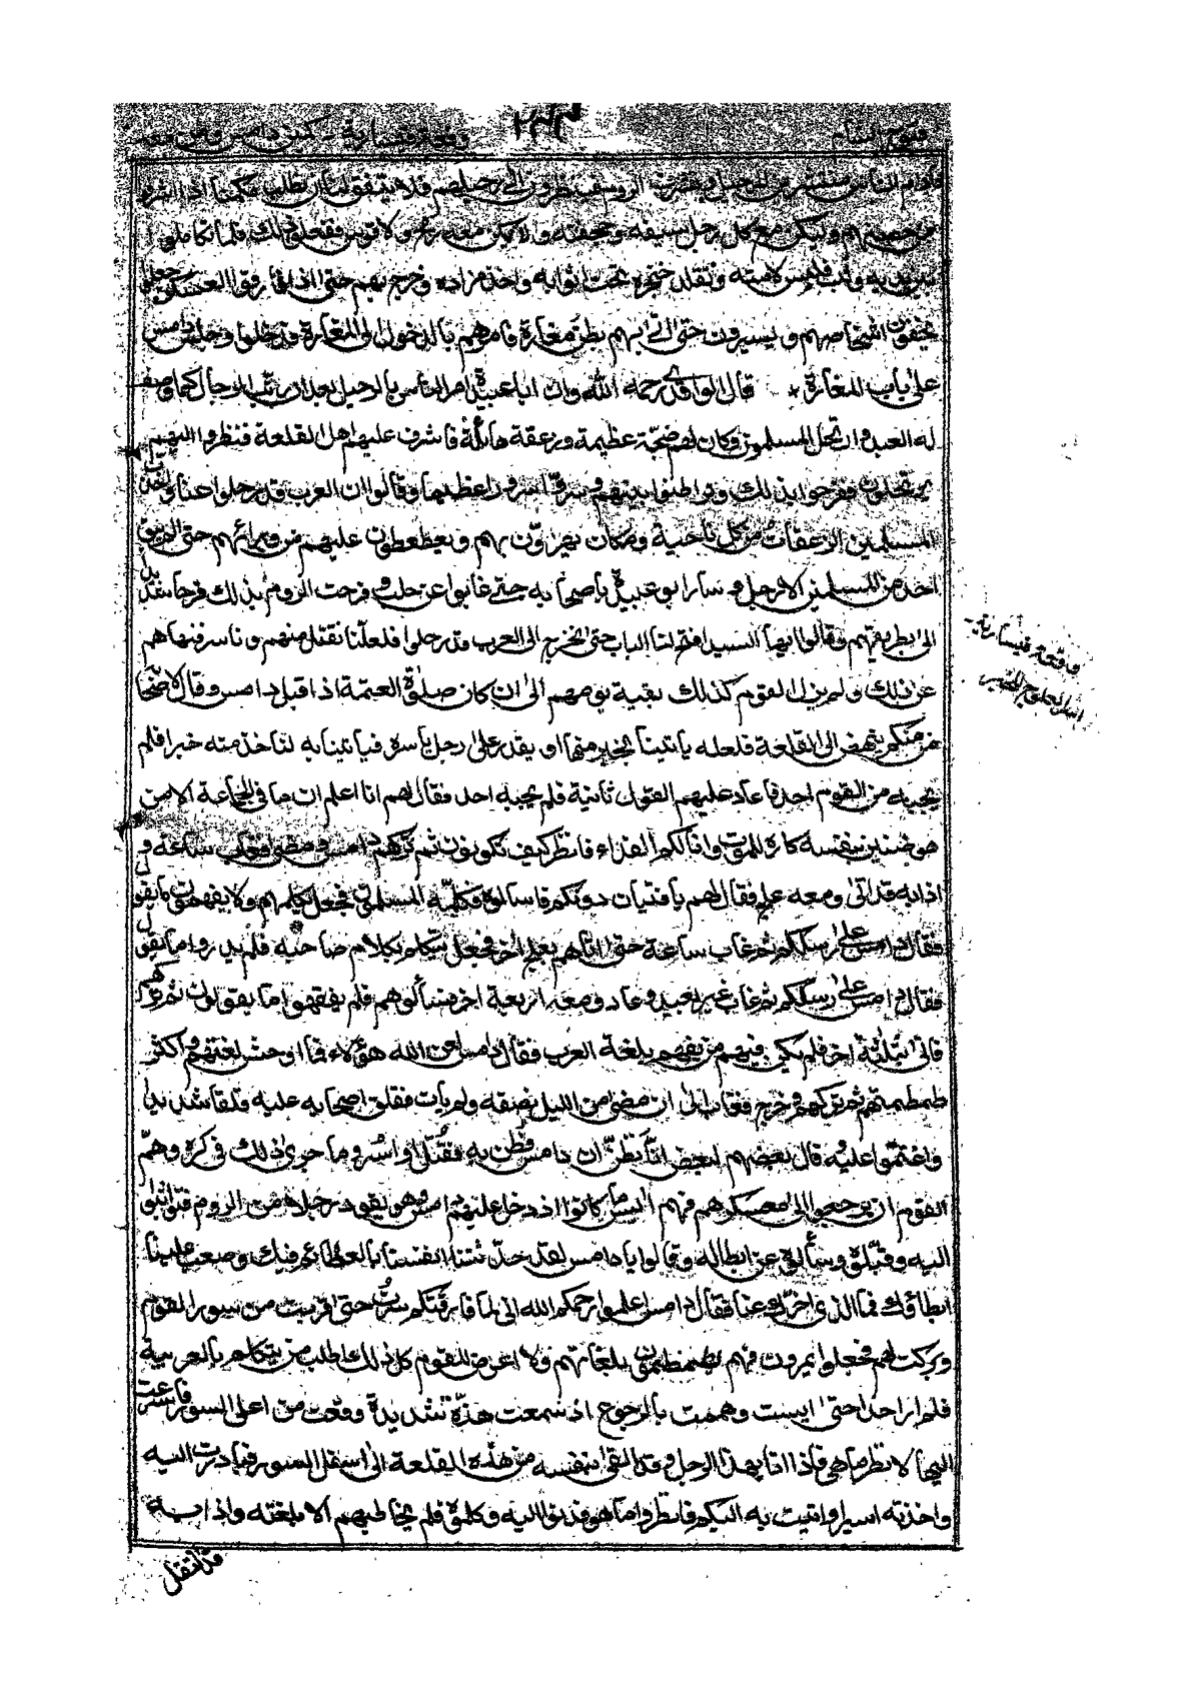 فتوح الشام
وقعة قيسارية
من جهتهم وليكن مع كل رجل سيفه وحجفته ولا يكن معه رمح ولا قوس ففعلوا ذلك فلما تكاملوا
بين يديه وثب فلبس لامته وتقلد خنجره تحت اثوابه واخذ مزاده وخرج بهم حتى اذا فارقوا العسكر جعل
يخفون اشخاصهم ويسيرون حتى اتى بهم مغارة فامرهم بالدخول الى المغارة فدخلوا وجلس دامس
على باب المغارة * قال الواقدي رحمه الله وان ابا عبيدة امر الناس بالرحيل بعد ان رتب الرجال كما وصف
له العبد وارتحل المسلمون وكان لهم ضجة عظيمة وزعقة هائلة فاشرف عليهم اهل القلعة فنظروا اليهم
يرتحلون ففرحوا بذلك بينهم وسروا سرورا عظيما وقالوا ان العرب قد رحلوا عنا
المسلمين الزعقات من كل ناحية ومكان عليهم من ورائهم حتى لم يبق
احد من المسلمين الا رحل وسار ابو عبيدة باصحابه حتى غابوا عن حلب وفرحت الروم بذلك فرحا شديدا
الى بطريقهم وقالوا ايها السيد افتح لنا الباب حتى نخرج الى العرب قد رحلوا فلعلنا نقتل منهم وناسر فنهاهم
عن ذلك ولم يزل القوم كذلك بقية يومهم الى ان كان صلوة العتمة اذ اقبل دامس وقال لاصحابه
من منكم ينهض الى القلعة فلعله ياتينا بخبر منها او يقدر على رجل ياسره فياتينا به لناخذ منه خبرا فلم
يجبه من القوم احد فاعاد عليهم القول ثانية فلم يجبه احد فقال لهم انا اعلم ان ما في الجماعة الا من
هو ضنين بنفسه كاره للموت وانا لكم الفداء فانظر كيف تكونون ثم تركهم دامس ومضى فغاب ساعة و
اذا به قد اتى ومعه علج فقال لهم يا فتيان دونكم فاسالوه فكلمه المسلمون فجعل يكلمهم ولا يفهمون ما يقول
فقال دامس على رسلكم ثم غاب ساعة حتى اتاهم بعلج اخر فجعل يتكلم بكلام صاحبه فلم يدروا ما يقول
فقال دامس على رسلكم ثم غاب غير بعيد وعاد ومعه اربعة اخر فسألوهم فلم يفقهوا ما يقولون ثم تركهم
فاتى بثلثة اخر فلم يكن فيهم من يفهم بلغة العرب فقال دامس لعن الله هؤلاء فما اوحش لغتهم واكثر
طمطمتهم ثم تركهم وخرج فغاب الى ان مضى من الليل نصفه ولم يات فقلق اصحابه عليه قلقا شديدا
واغتموا عليه وقال بعضهم لبعض انا نظن ان دامس فطن به فقتل او اسر وما جرى ذلك في فكره وهم
القوم ان يرجعوا الى معسكرهم فهم ايس ما كانوا اذ دخل عليهم دامس وهو يقود رجلا من الروم فوثبوا
اليه وقبلوه وسألوه عن ابطائه وقالوا يا دامس لقد حدثتنا انفسنا بالعظائم فيك وصعب علينا
ابطاؤك فما الذي اخرك عنا فقال دامس اعلموا رحمكم الله اني لما فارقتكم سرت حتى قربت من سور القوم
فجعلوا يمرون بلغاتهم ولا اعرض للقوم كل ذلك اطلب من يتكلم بالعربية
فلم ار احدا حتى ايست وهممت بالرجوع اذ سمعت هدة شديدة وقعت من اعلى السور فاسرعت
اليها لانظر ما هي فاذا انا بهذا الرجل وقد القى بنفسه من هذه القلعة الى اسفل السور فبادرت اليه
واخذته اسيرا واتيت به اليكم فانظروا ما هو فدنوا اليه وكلموه فلم يخاطبهم الا بلغته واذا به
وقعة قيسارية
قد انفتل